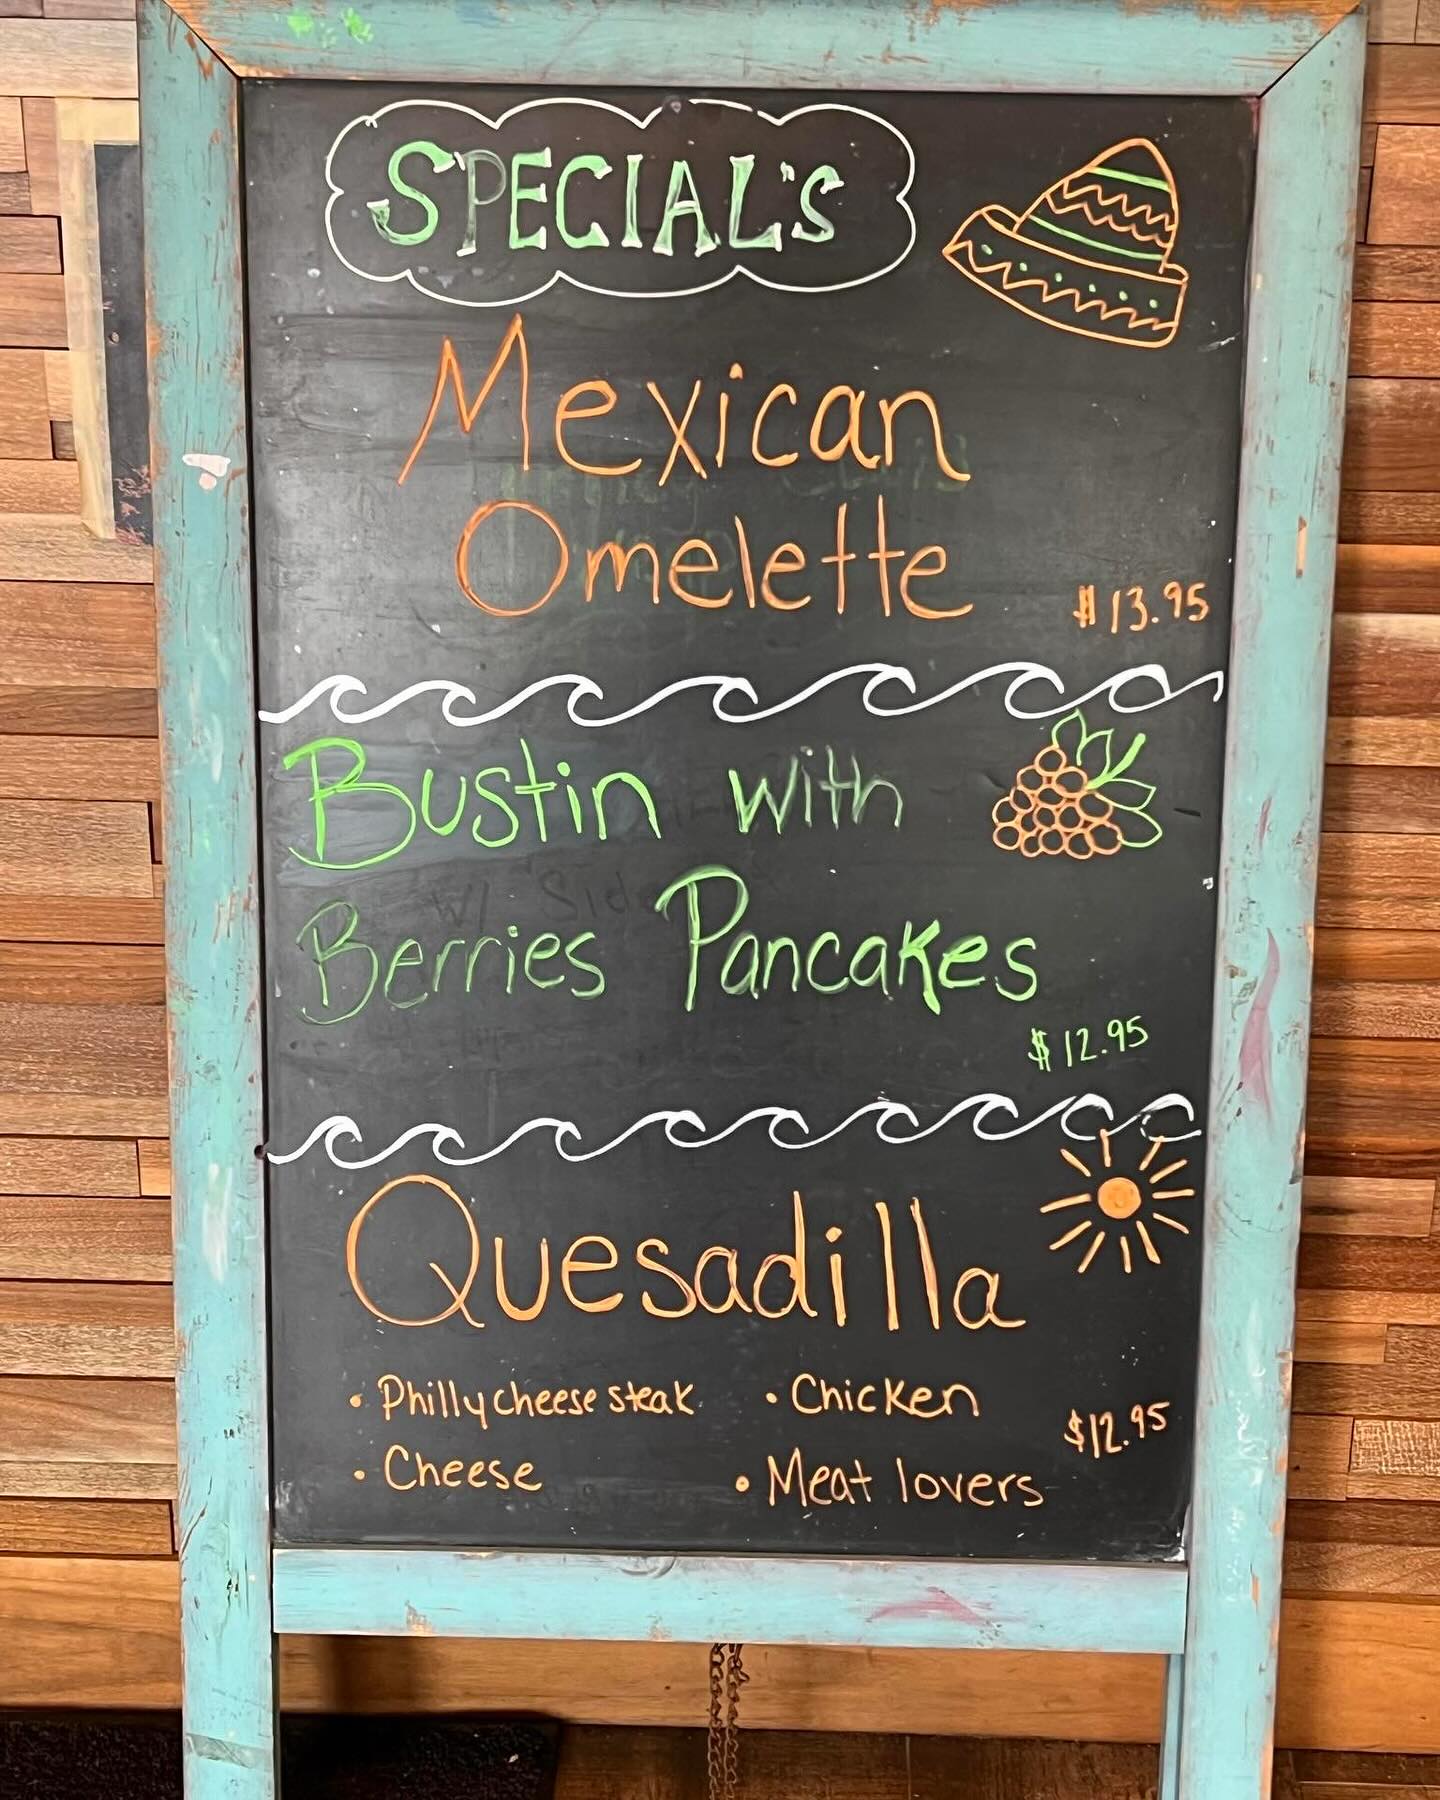 SPECIAL'S
Mexican
Omelette
$13.95
Bustin with
Berries Pancakes
$12.95
Quesadilla
• Philly cheese steak • Chicken
$12.95
• Cheese • Meat lovers